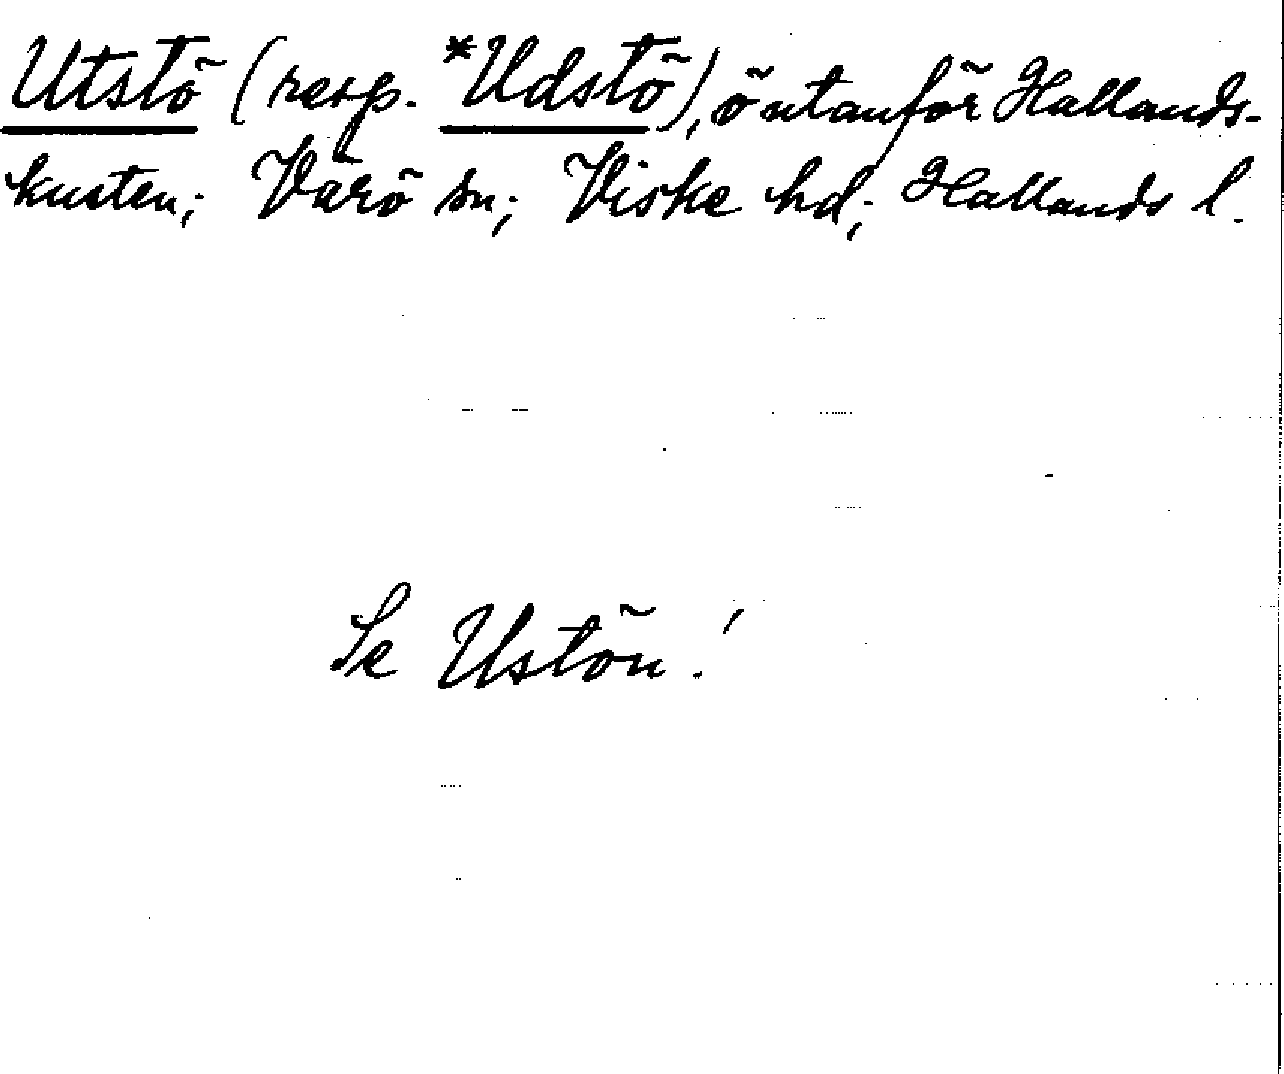 Utstö (resp. *Udstö), ö utanför Hallands-
kusten; Värö sn; Viske hd; Hallands l.
Se Ustön!